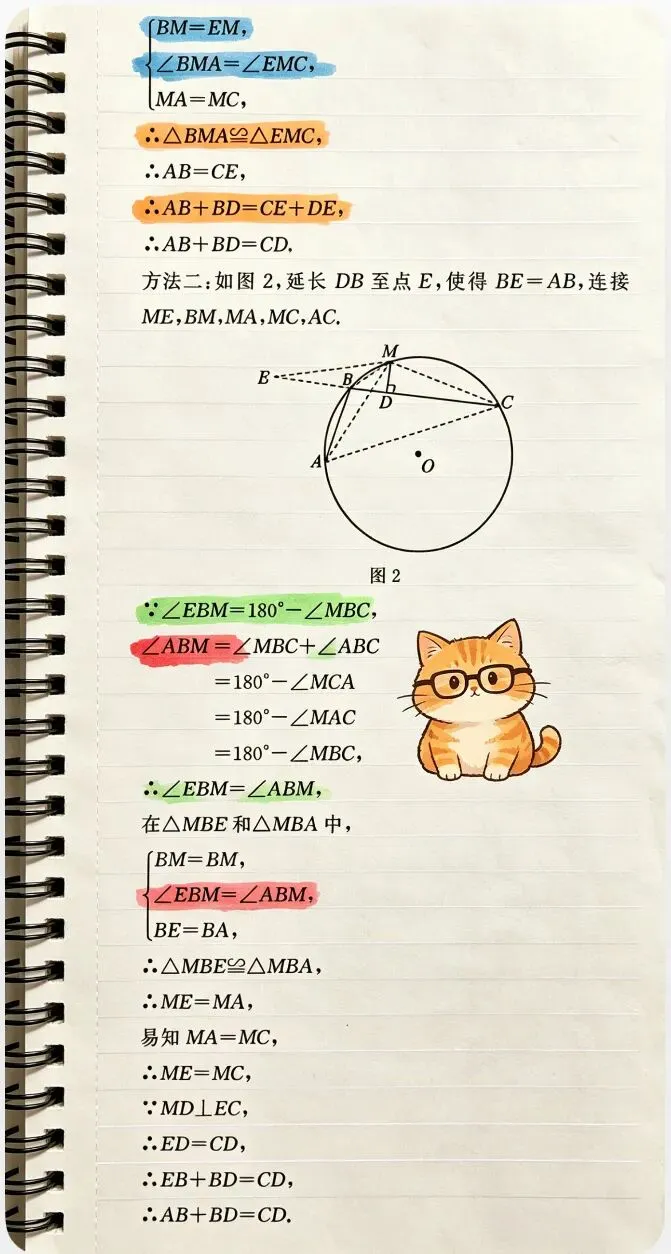 BM=EM,
∠BMA=∠EMC,
MA=MC,
∴△BMA≌△EMC,
∴AB=CE,
∴AB+BD=CE+DE,
∴AB+BD=CD.
方法二:如图 2,延长 DB 至点 E,使得 BE=AB,连接
ME,BM,MA,MC,AC.
M
E
B
D
C
A
O
图 2
∵∠EBM=180°-∠MBC,
∠ABM=∠MBC+∠ABC
=180°-∠MCA
=180°-∠MAC
=180°-∠MBC,
∴∠EBM=∠ABM,
在△MBE 和△MBA 中,
BM=BM,
∠EBM=∠ABM,
BE=BA,
∴△MBE≌△MBA,
∴ME=MA,
易知 MA=MC,
∴ME=MC,
∵MD⊥EC,
∴ED=CD,
∴EB+BD=CD,
∴AB+BD=CD.